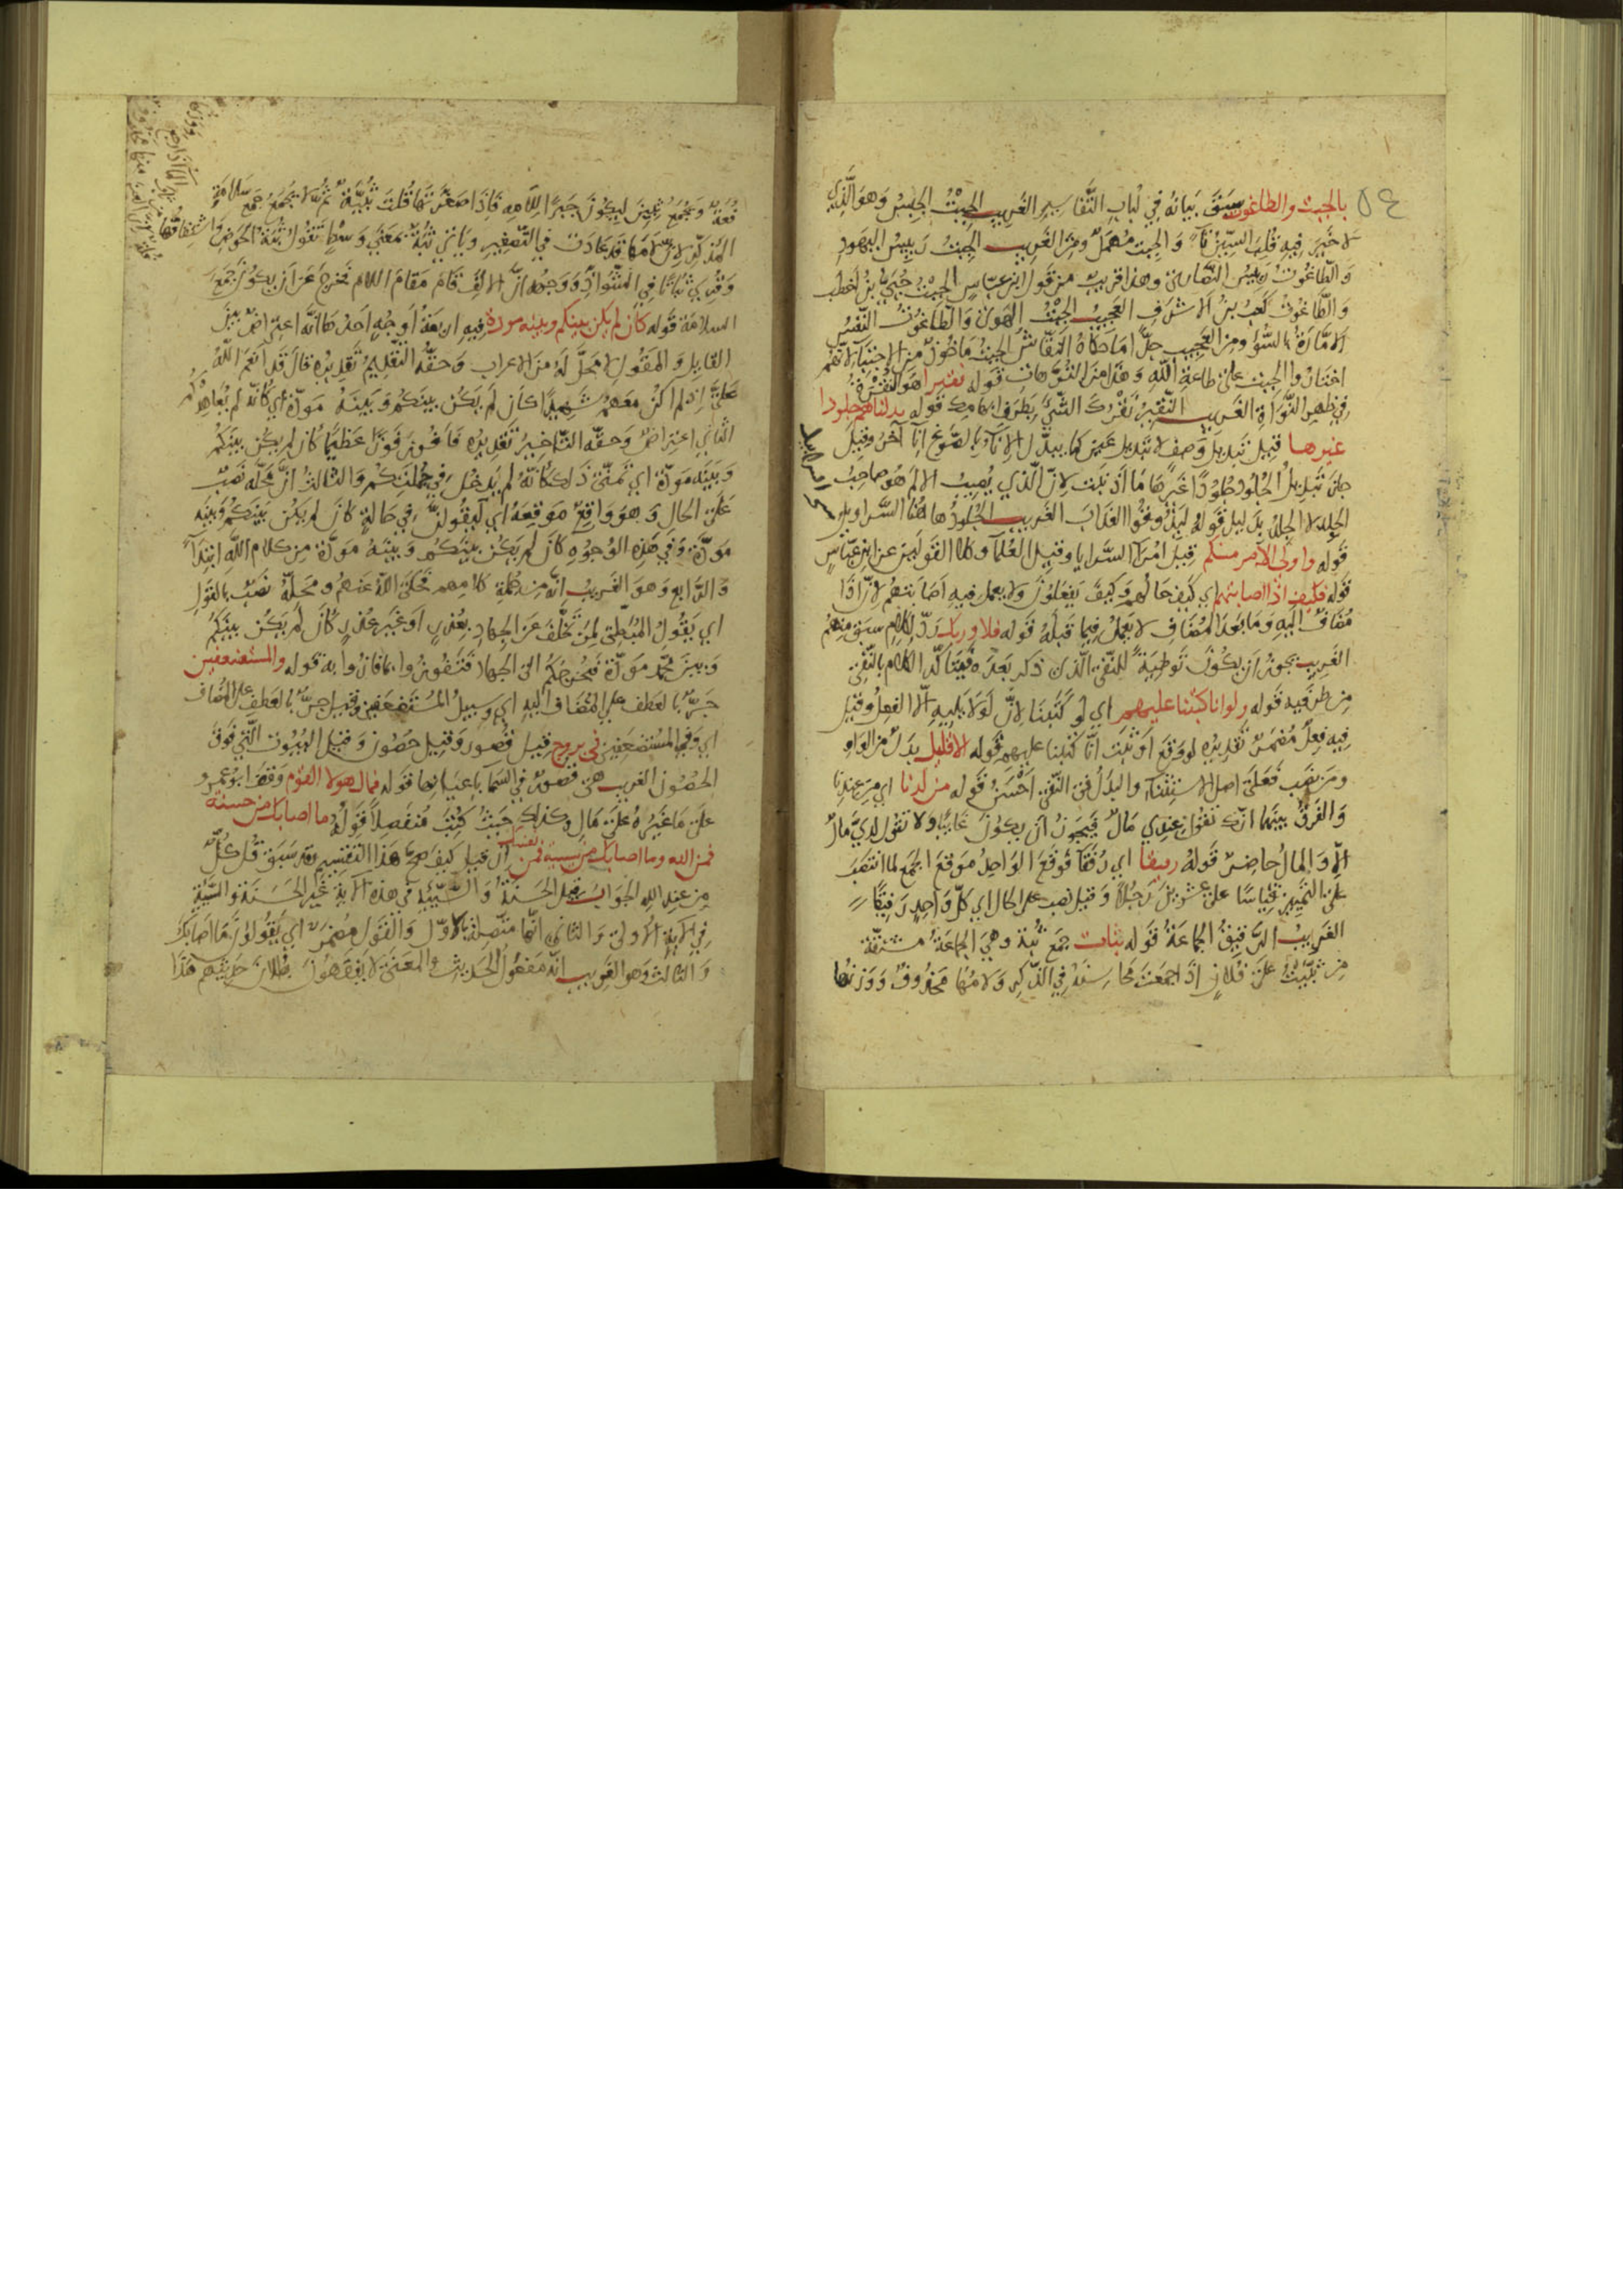 ٥٤
بالجبت والطاغوت سبق بيانه في لباب التفاسير الغريب الجبت الجبس وهو الذي
لا خير فيه قلبت السين تاء والجبت مهمل ومن الغريب الجبت رييس اليهود
والطاغوت رييس النصارى وهذا قريب من قول ابن عباس الجبت حيي بن اخطب
والطاغوت كعب بن الاشرف العجيب الجبت الهوى والطاغوت النفس
الامارة بالسوء ومن العجيب جدا ما حكاه النقاش الجبت ماخوذ من الاجتباء لانهم
اختاروا الجبت على طاعة الله وهذا من الترهات قوله نقيرا هو النقرة
في ظهر النواة الغريب النقير نقرك الشيء بطرف ابهامك قوله بدلناهم جلودا
غيرها قيل تبديل وصف لا تبديل عين كما يبدل الاناء بالصوغ انا آخر وقيل
جاز تبديل الجلود جلودا غيرها ما اذنبت لان الذي يصيب الالم هو صاحب
الجلد لا الجلد بدليل قوله ليذوقوا العذاب الغريب الجلود هاهنا السراويل
قوله واولى الامر منكم قيل امراء السرايا وقيل العلماء وكلا القولين عن ابن عباس
قوله فكيف اذا اصابتهم اي كيف حالهم وكيف يفعلون ولا يعمل فيه اصابتهم لان اذا
مضاف اليه وما بعد المضاف لا يعمل فيما قبله قوله فلا وربك رد لكلام سبق منهم
الغريب يجوز ان يكون توطية للنفي الذى ذكر بعده فيتاكد الكلام بالنفي
من طرفيه قوله ولو انا كتبنا عليهم اي لو كتبنا لان لو لا يليه الا الفعل وقيل
فيه فعل مضمر تقديره لو وقع او ثبت انا كتبنا عليهم قوله الا قليل بدل من الواو
ومن نصب فعلى اصل الاستثناء والبدل في النفي احسن قوله من لدنا اي من عندنا
والفرق بينهما انك تقول عندي مال فيجوز ان يكون غايبا ولا تقول لدي مال
الا والمال حاضر قوله رفيقا اي رفقاء فوقع الواحد موقع الجمع لما انتصب
على التمييز قياسا على عشرين رجلا وقيل نصب على الحال اي كل واحد رفيقا
الغريب الرفيق الجماعة قوله ثبات جمع ثبة وهي الجماعة مشتقة
من ثبيت على فلان اذا جمعت محاسنه في الذكر ولامها محذوف ووزنها
فعة ويجمع ثبين ليكون جبرا للامه فاذا صغرتها قلت ثبية ثم لا يجمع جمع سلامة
المذكر لان لامها قد عادت في التصغير ويأتي ثبة بمعنى وسط تقول ثبة الحوض واشتقاقها
وقرئ ثباتا في الشواذ ووجهه ان الالف قام مقام اللام فخرج عن ان يكون جمع
السلامة قوله كان لم يكن بينكم وبينه مودة فيه اربعة اوجه احدها انه اعتراض بين
القايل والمقول لا محل له من الاعراب وحقه التقديم تقديره قال قد انعم الله
علي اذ لم اكن معهم شهيدا كان لم يكن بينكم وبينه مودة اي كانه لم يعاهدكم
الثاني اعتراض وحقه التاخير تقديره فافوز فوزا عظيما كان لم يكن بينكم
وبينه مودة اي تمنى ذلك كانه لم يدخل في جملتكم والثالث ان محله نصب
على الحال وهو واقع موقعه اي ليقولن في حالة كان لم يكن بينكم وبينه
مودة وفي هذه الوجوه كان لم يكن بينكم وبينه مودة من كلام الله ابتداء
والرابع وهو الغريب انه من جملة كلامهم فحكى الله عنهم ومحله نصب بالقول
اي يقول المبطئ لمن تخلف عن الجهاد بعذر او غير عذر كان لم يكن بينكم
وبين محمد مودة فيخرجكم الى الجهاد فتفوزوا بما فازوا به قوله والمستضعفين
جر بالعطف على المضاف اليه اي وسبيل المستضعفين وقيل جر بالعطف على المضاف
اي وفي المستضعفين في بروج قيل قصور وقيل حصون وقيل البيوت التي فوق
الحصون الغريب هي قصور في السماء باعيانها قوله فمال هولا القوم وقف ابو عمرو
على ما غيره على مال وكذلك حيث كتب منفصلا قوله ما اصابك من حسنة
فمن الله وما اصابك من سيية فمن نفسك ان قيل كيف صح هذا التفسير وقد سبق قل كل
من عند الله الجواب فيحمل الحسنة والسيئة في هذه الاية غير الحسنة والسيئة
في الاية الاولى والثاني انها متصلة بالاول والقول مضمر اي يقولون ما اصابك
والثالث وهو الغريب انه مفعول الحديث والمعنى لا يفقهون بطلان حديثهم هذا